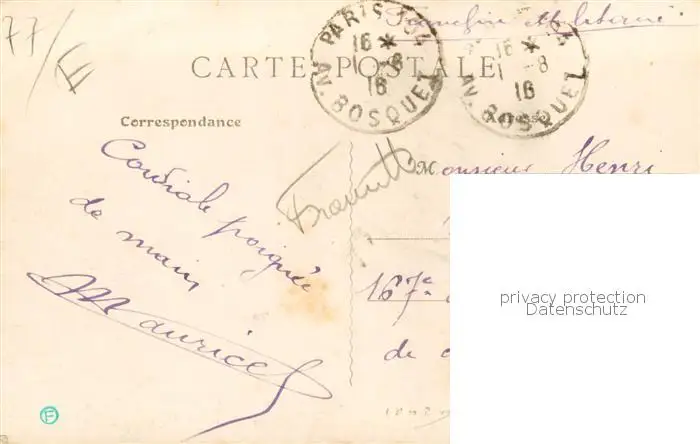 77/E
Franchise Militaire
PARIS 84
16 *
1 -8
16
AV. BOSQUET
16 *
1 -8
16
AV. BOSQUET
CARTE POSTALE
Correspondance
Adresse
Cordiale poignée
de main
Maurice
Monsieur Henri
167e
de
privacy protection
Datenschutz
F